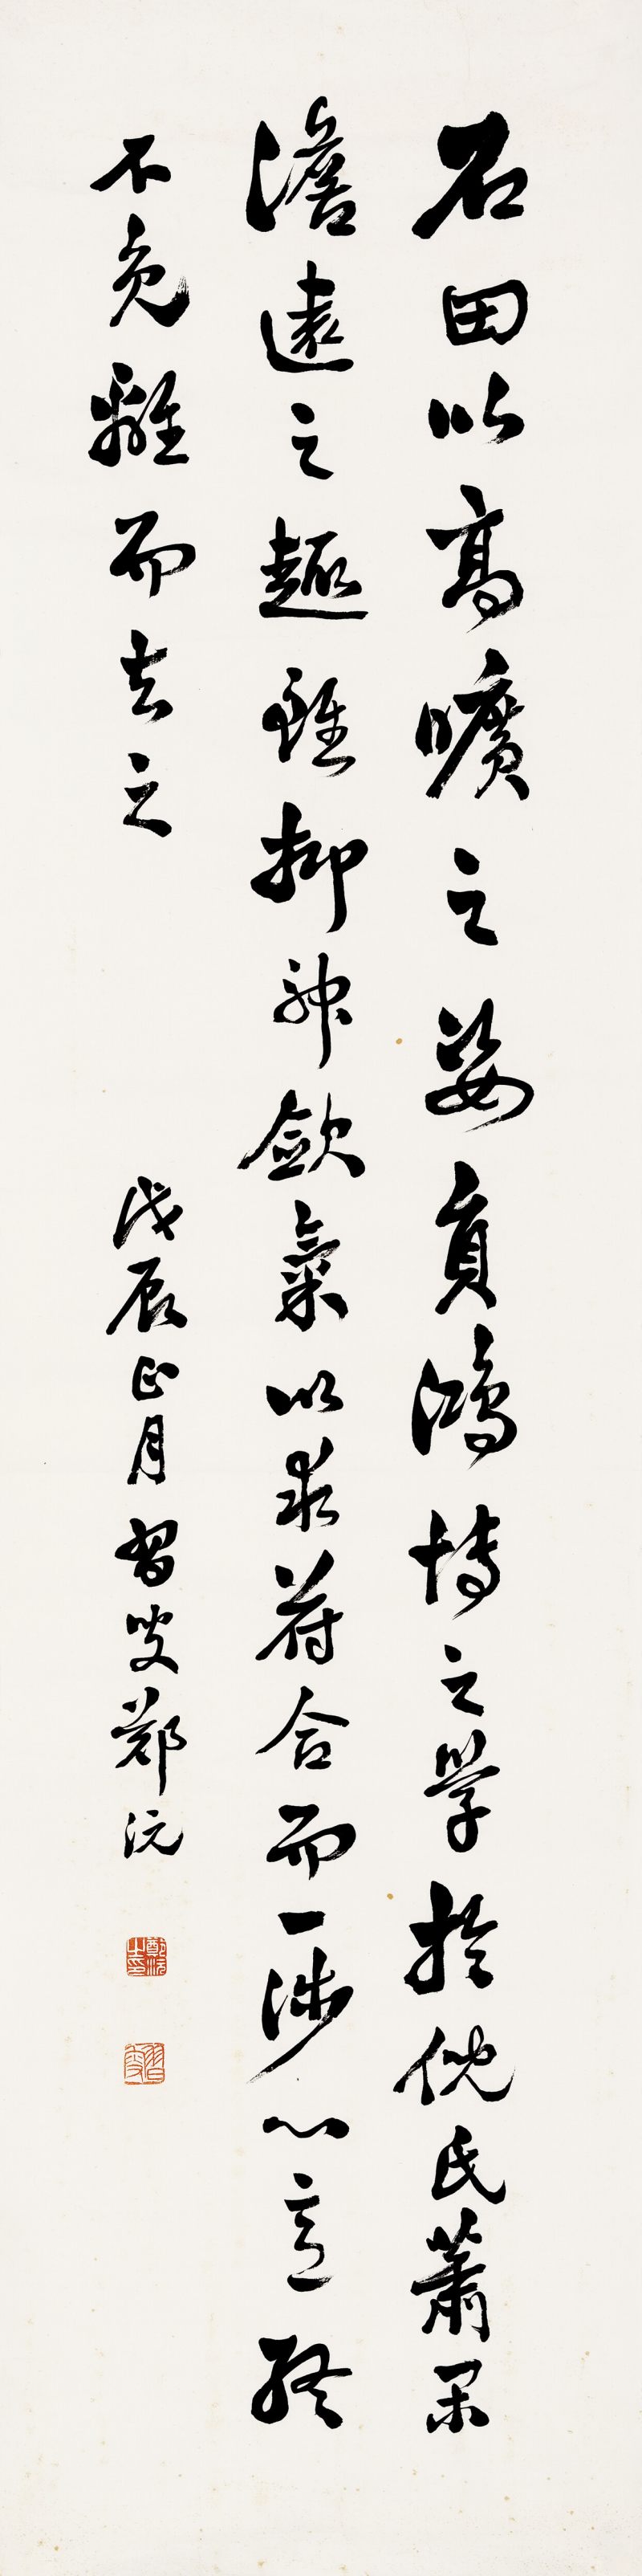 石田以高曠之姿負鴻博之學於倪氏蕭閑
澹遠之趣雖抑神斂氣以求符合而一涉心意終
不免離而去之
戊辰正月習叟鄭沅
鄭沅之印
習叟